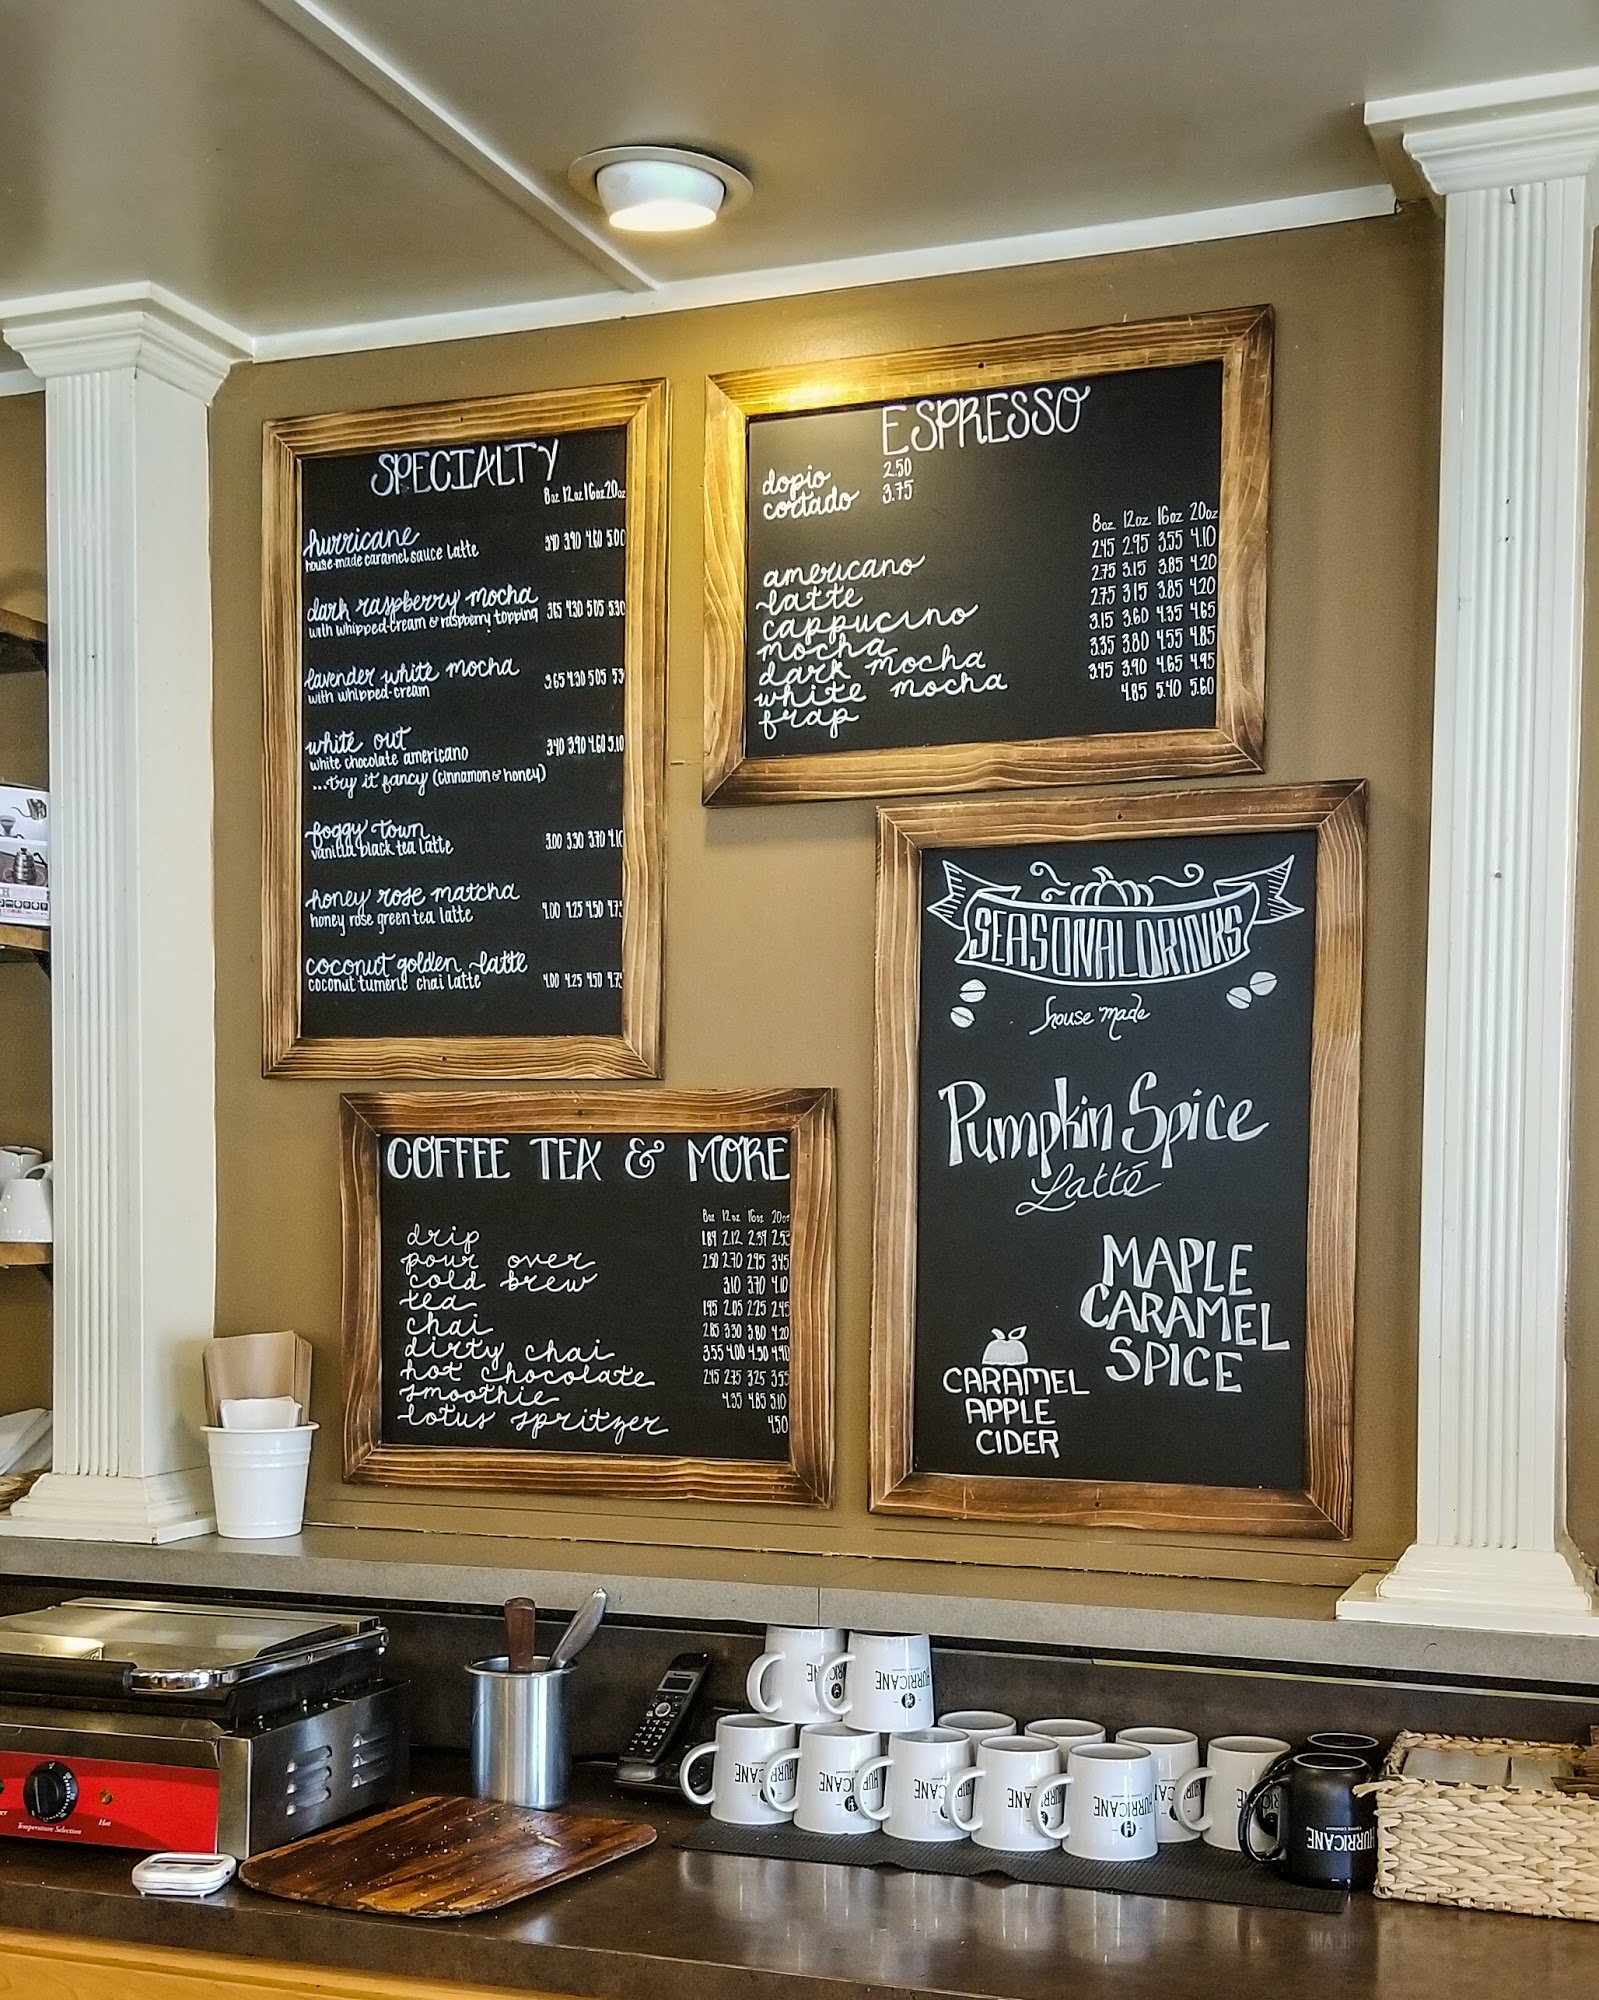 SPECIALTY
8oz 12oz 16oz 20oz
hurricane 3.40 3.90 4.60 5.00
house-made caramel sauce latte
dark raspberry mocha 3.65 4.30 5.05 5.30
with whipped-cream & raspberry topping
lavender white mocha 3.65 4.30 5.05 5.3
with whipped-cream
white out 3.40 3.90 4.60 5.10
white chocolate americano
...try it fancy (cinnamon & honey)
foggy town 3.00 3.30 3.70 4.10
vanilla black tea latte
honey rose matcha 4.00 4.25 4.50 4.75
honey rose green tea latte
coconut golden latte 4.00 4.25 4.50 4.75
coconut tumeric chai latte
ESPRESSO
dopio 2.50
cortado 3.75
8oz 12oz 16oz 20oz
americano 2.45 2.95 3.55 4.10
latte 2.75 3.15 3.85 4.20
cappucino 2.75 3.15 3.85 4.20
mocha 3.15 3.60 4.35 4.65
dark mocha 3.35 3.80 4.55 4.85
white mocha 3.45 3.90 4.65 4.95
frap 4.85 5.40 5.60
COFFEE TEA & MORE
8oz 12oz 16oz 20oz
drip 1.89 2.12 2.39 2.53
pour over 2.50 2.70 2.95 3.45
cold brew 3.10 3.70 4.10
tea 1.95 2.05 2.25 2.45
chai 2.85 3.30 3.80 4.20
dirty chai 3.55 4.00 4.50 4.90
hot chocolate 2.45 2.75 3.25 3.55
smoothie 4.35 4.85 5.10
lotus spritzer 4.50
SEASONAL DRINKS
house made
Pumpkin Spice
Latté
MAPLE
CARAMEL
SPICE
CARAMEL
APPLE
CIDER
Temperature Selection
Hot
HURRICANE
HURRICANE
HURRICANE
HURRICANE
HURRICANE